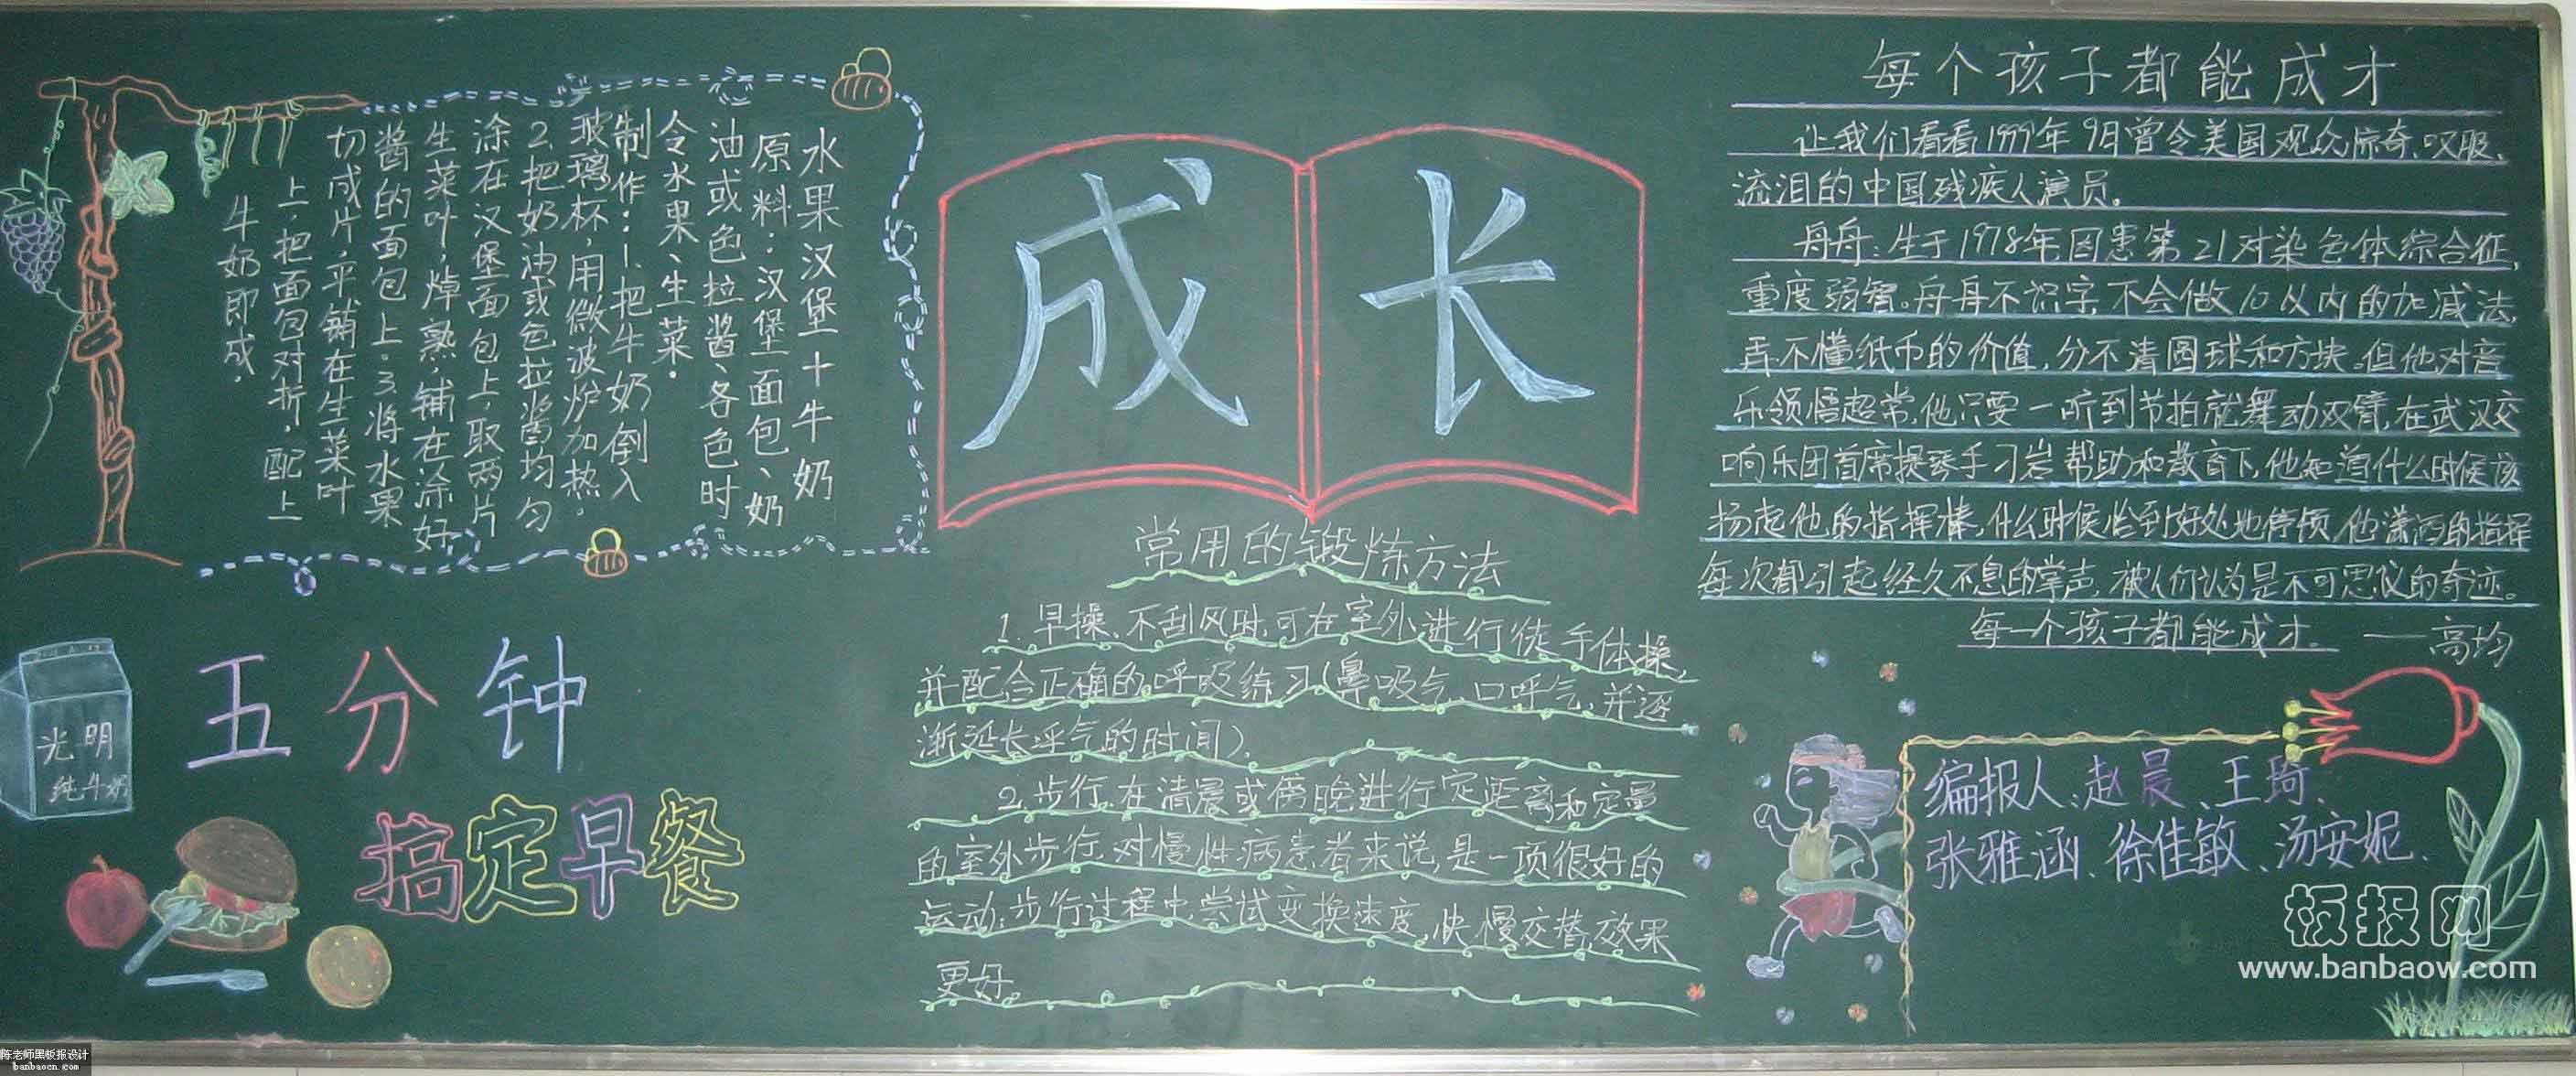 水果汉堡+牛奶
原料：汉堡面包、奶
油或色拉酱、各色时
令水果、生菜。
制作：1.把牛奶倒入
玻璃杯，用微波炉加热。
2.把奶油或色拉酱均匀
涂在汉堡面包上，取两片
生菜叶，焯熟，铺在涂好
酱的面包上。3.将水果
切成片，平铺在生菜叶
上，把面包对折，配上
牛奶即成。
光明
纯牛奶
五分钟
搞定早餐
成长
常用的锻炼方法
1.早操,不刮风时,可在室外进行徒手体操,
并配合正确的呼吸练习(鼻吸气、口呼气,并逐
渐延长呼气的时间).
2.步行.在清晨或傍晚进行定距离和定量
的室外步行,对慢性病患者来说,是一项很好的
运动;步行过程中,尝试变换速度,快慢交替,效果
更好.
每个孩子都能成才
让我们看看1999年9月曾令美国观众惊奇、叹服、
流泪的中国残疾人演员。
舟舟:生于1978年,因患第21对染色体综合征,
重度弱智。舟舟不识字,不会做10以内的加减法,
弄不懂纸币的价值,分不清圆球和方块。但他对音
乐领悟超常,他只要一听到节拍就舞动双臂,在武汉交
响乐团首席提琴手刁岩帮助和教育下,他知道什么时候该
扬起他的指挥棒,什么时候恰到好处地停顿,他潇洒的指挥
每次都引起经久不息的掌声,被人们认为是不可思议的奇迹。
每一个孩子都能成才。——高均
编报人:赵晨、王琦、
张雅涵、徐佳敏、汤安妮.
板报网
www.banbaow.com
陈老师黑板报设计
banbaocn.com